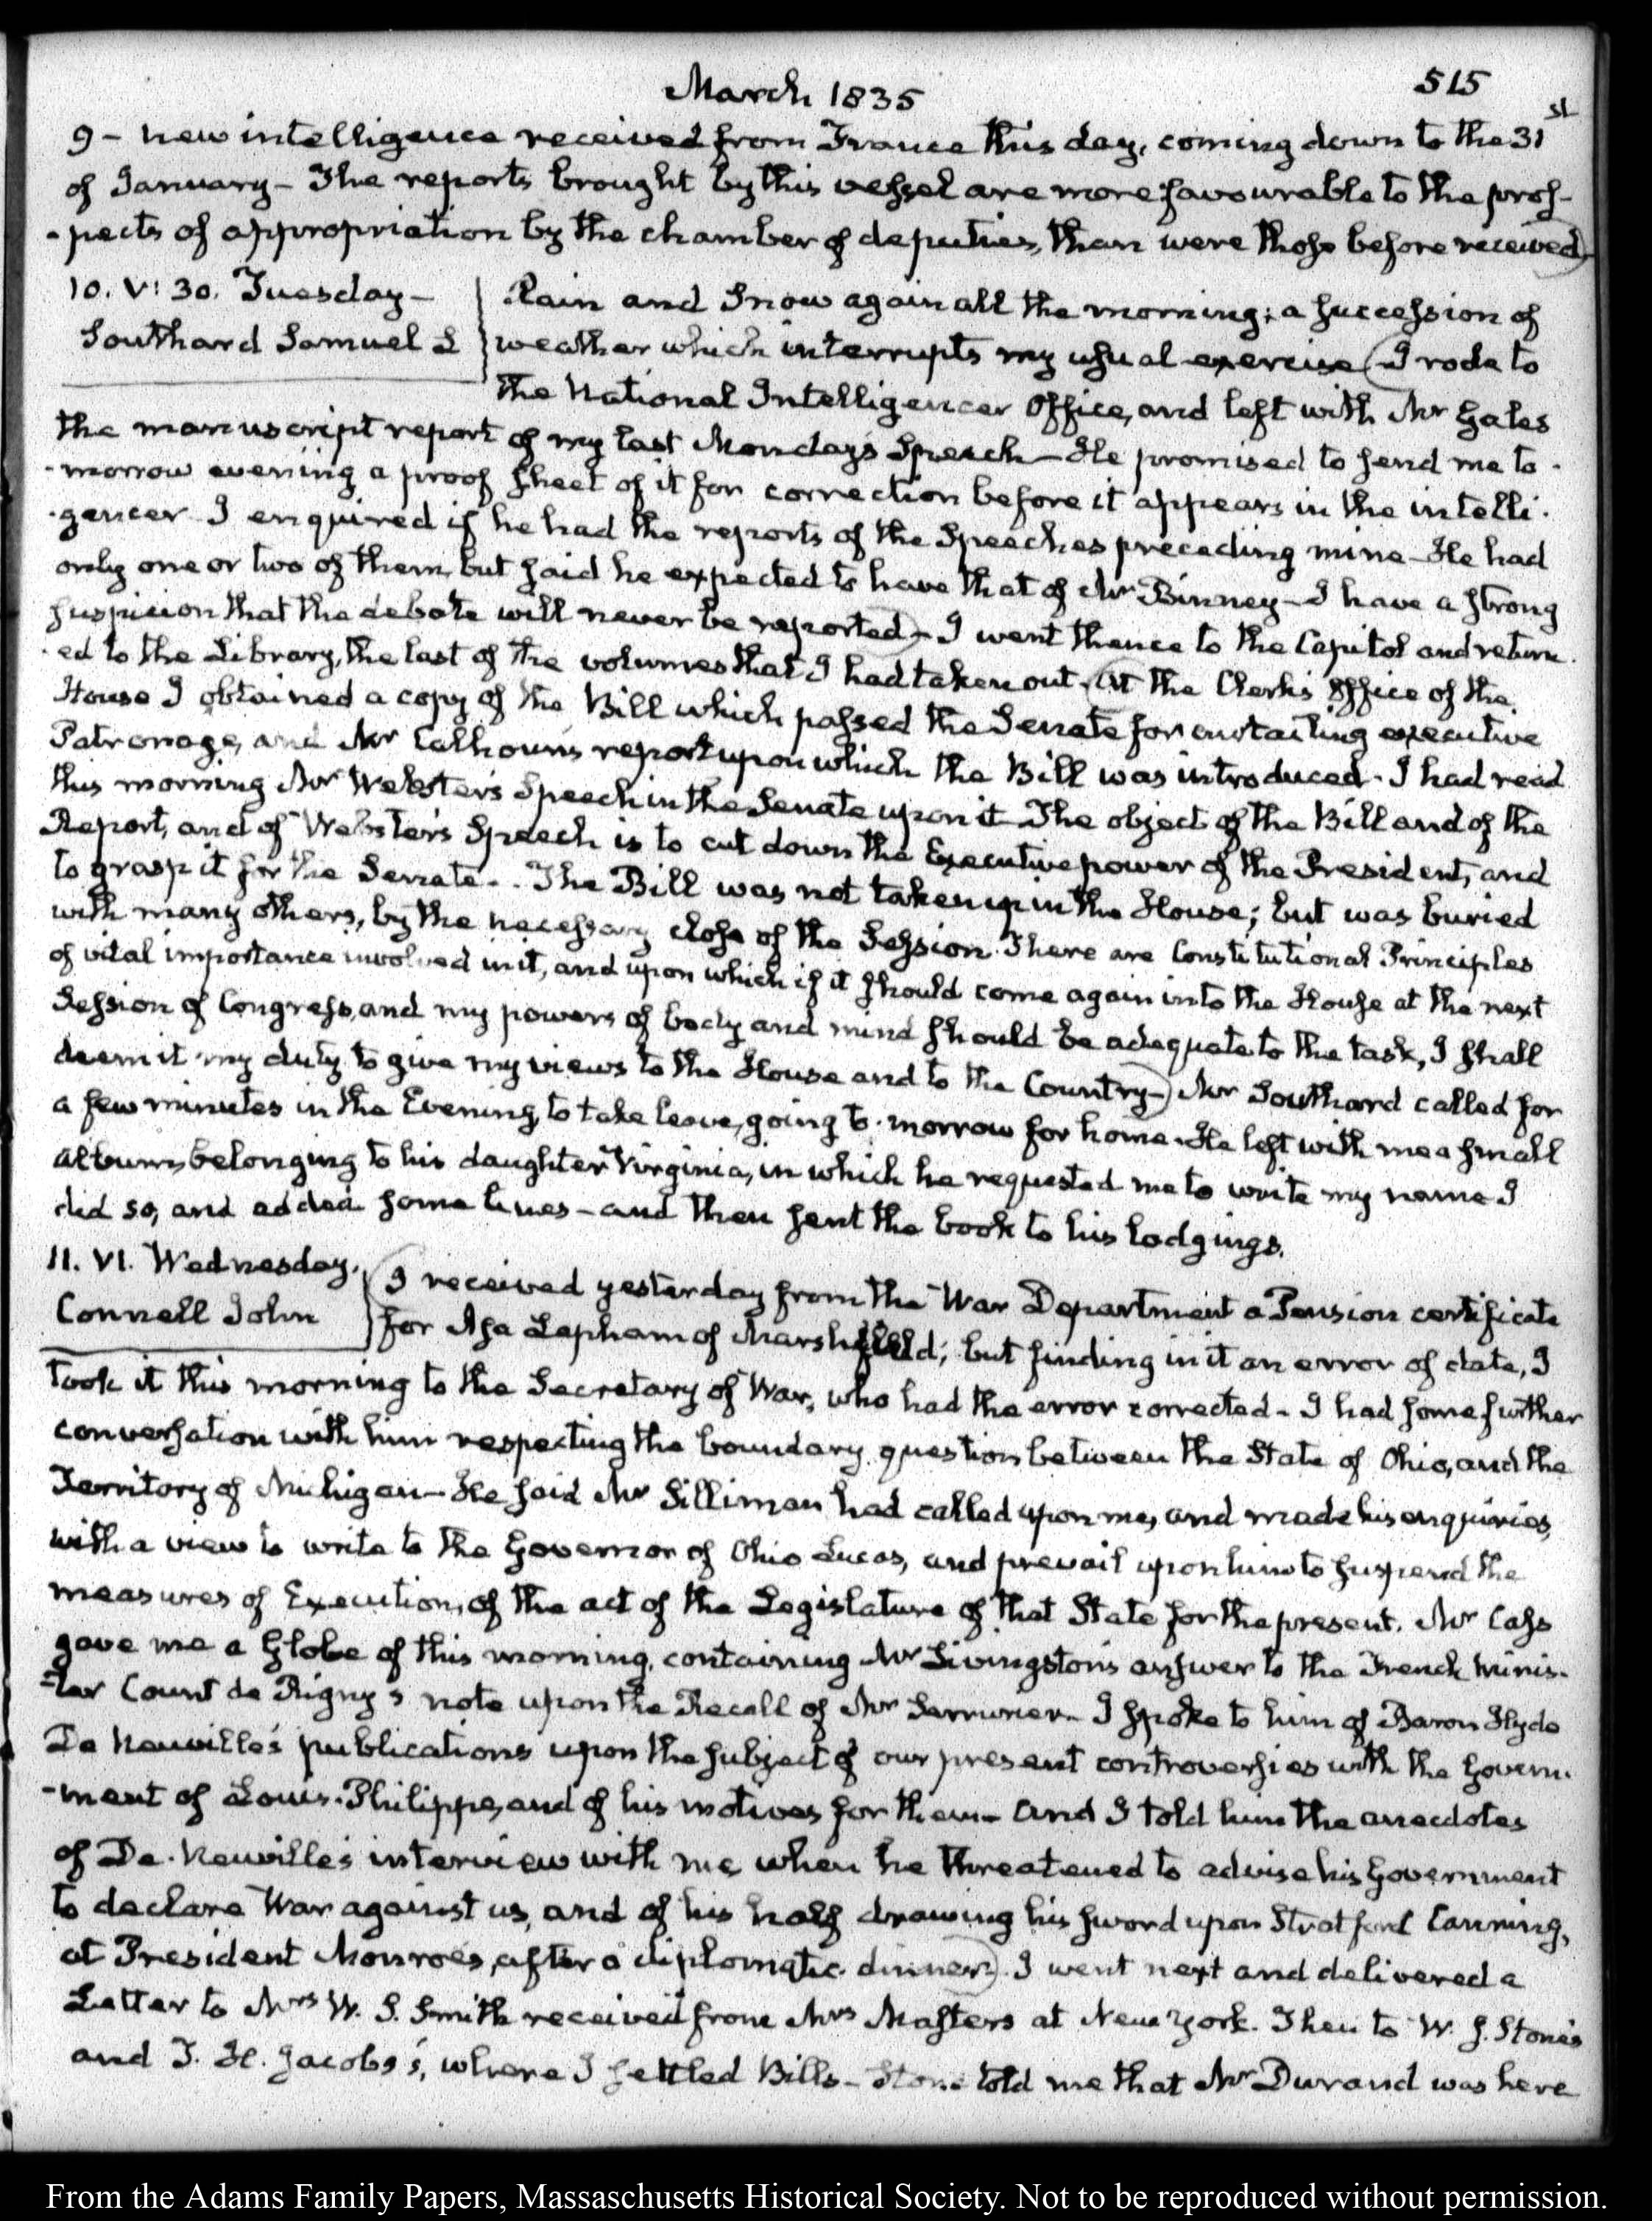 March 1835
515
9 - new intelligence received from France this day, coming down to the 31st
of January - The reports brought by this vessel are more favourable to the pros-
-pects of appropriation by the chamber of deputies, than were those before received
10. V: 30. Tuesday -
Southard Samuel L
Rain and Snow again all the morning; a succession of
weather which interrupts my usual exercise I rode to
the National Intelligencer Office, and left with Mr Gales
the manuscript report of my last Monday's Speech - He promised to send me to-
-morrow evening a proof sheet of it for correction before it appears in the intelli-
-gencer. I enquired if he had the reports of the Speeches preceding mine - He had
only one or two of them, but said he expected to have that of Mr Binney - I have a strong
suspicion that the debate will never be reported - I went thence to the Capitol and return-
-ed to the Library, the last of the volumes that I had taken out. At the Clerk's Office of the
House I obtained a copy of the Bill which passed the Senate for curtailing executive
Patronage, and Mr Calhoun's report upon which the Bill was introduced. I had read
this morning Mr Webster's Speech in the Senate upon it The object of the Bill and of the
Report, and of Webster's Speech is to cut down the Executive power of the President, and
to grasp it for the Senate. - The Bill was not taken up in the House; but was buried
with many others, by the necessary close of the Session. There are Constitutional Principles
of vital importance involved in it, and upon which if it should come again into the House at the next
Session of Congress, and my powers of body and mind should be adequate to the task, I shall
deem it my duty to give my views to the House and to the Country - Mr Southard called for
a few minutes in the Evening, to take leave, going to-morrow for home. He left with me a small
album, belonging to his daughter Virginia, in which he requested me to write my name I
did so, and added some lines - and then sent the book to his lodgings.
11. VI. Wednesday.
Connell John
I received yesterday from the War Department a Pension certificate
for Asa Lapham of Marshfield; but finding in it an error of date, I
took it this morning to the Secretary of War, who had the error corrected - I had some further
conversation with him respecting the boundary question between the State of Ohio, and the
Territory of Michigan - He said Mr Silliman had called upon me, and made his enquiries,
with a view to write to the Governor of Ohio Lucas, and prevail upon him to suspend the
measures of Execution, of the act of the Legislature of that State for the present. Mr Cass
gave me a Globe of this morning, containing Mr Livingston's answer to the French Minis-
-ter Count de Rigny's note upon the Recall of Mr Serrurier - I spoke to him of Baron Hyde
De Neuville's publications upon the subject of our present controversies with the Govern-
-ment of Louis-Philippe, and of his motives for them - and I told him the anecdotes
of De Neuville's interview with me when he threatened to advise his Government
to declare War against us, and of his half drawing his sword upon Stratford Canning,
at President Monroe's, after a diplomatic dinner. I went next and delivered a
Letter to Mrs W. S. Smith received from Mrs Masters at New York. Then to W. J. Stone's
and T. H. Jacobs's, where I settled Bills - Stone told me that Mr Durand was here
From the Adams Family Papers, Massachusetts Historical Society. Not to be reproduced without permission.